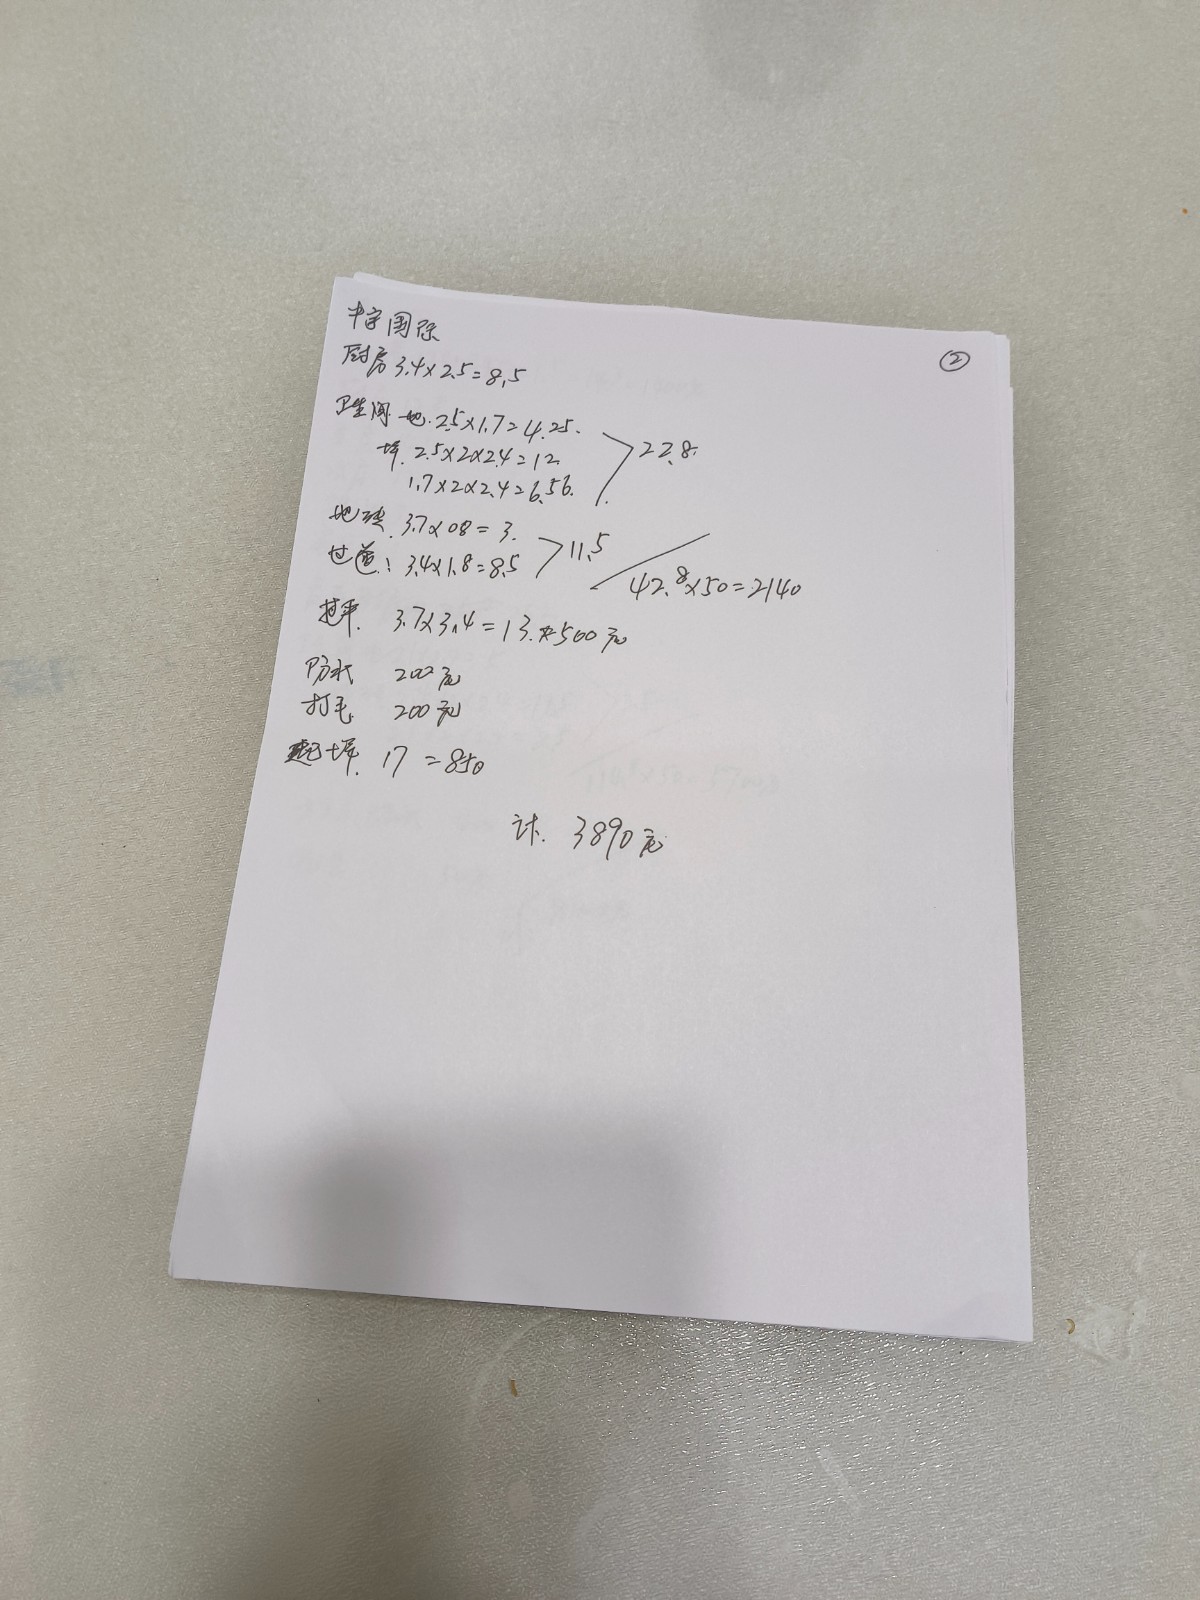 中宇国际
②
厨房 3.4×2.5=8.5
卫生间 地.2.5×1.7=4.25.
墙. 2.5×2×2.4=12.
1.7×2×2.4=6.56.
22.8.
地砖. 3.7×08=3.
过道: 3.4×1.8=8.5
11.5
42.8×50=2140
找平. 3.7×3.4=13. 500元
防水 200元
打毛 200元
墙. 17 =850
计. 3890元